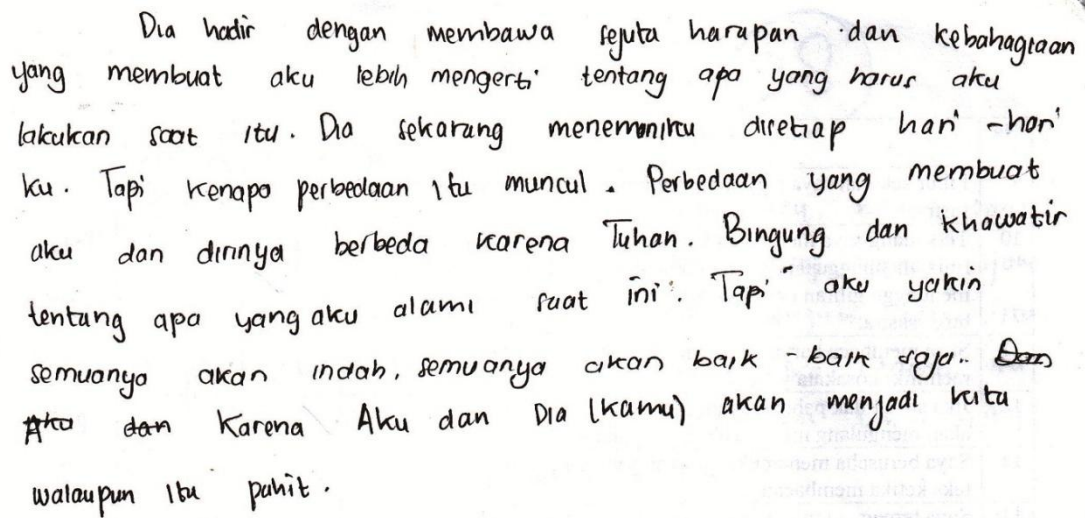 Dia hadir dengan membawa sejuta harapan dan kebahagiaan
yang membuat aku lebih mengerti tentang apa yang harus aku
lakukan saat itu. Dia sekarang menemaniku disetiap hari-hari
ku. Tapi kenapa perbedaan itu muncul. Perbedaan yang membuat
aku dan dirinya berbeda karena Tuhan. Bingung dan khawatir
tentang apa yang aku alami saat ini. Tapi aku yakin
semuanya akan indah, semuanya akan baik-baik saja. Dan
Aku dan Karena Aku dan Dia (kamu) akan menjadi kita
walaupun itu pahit.